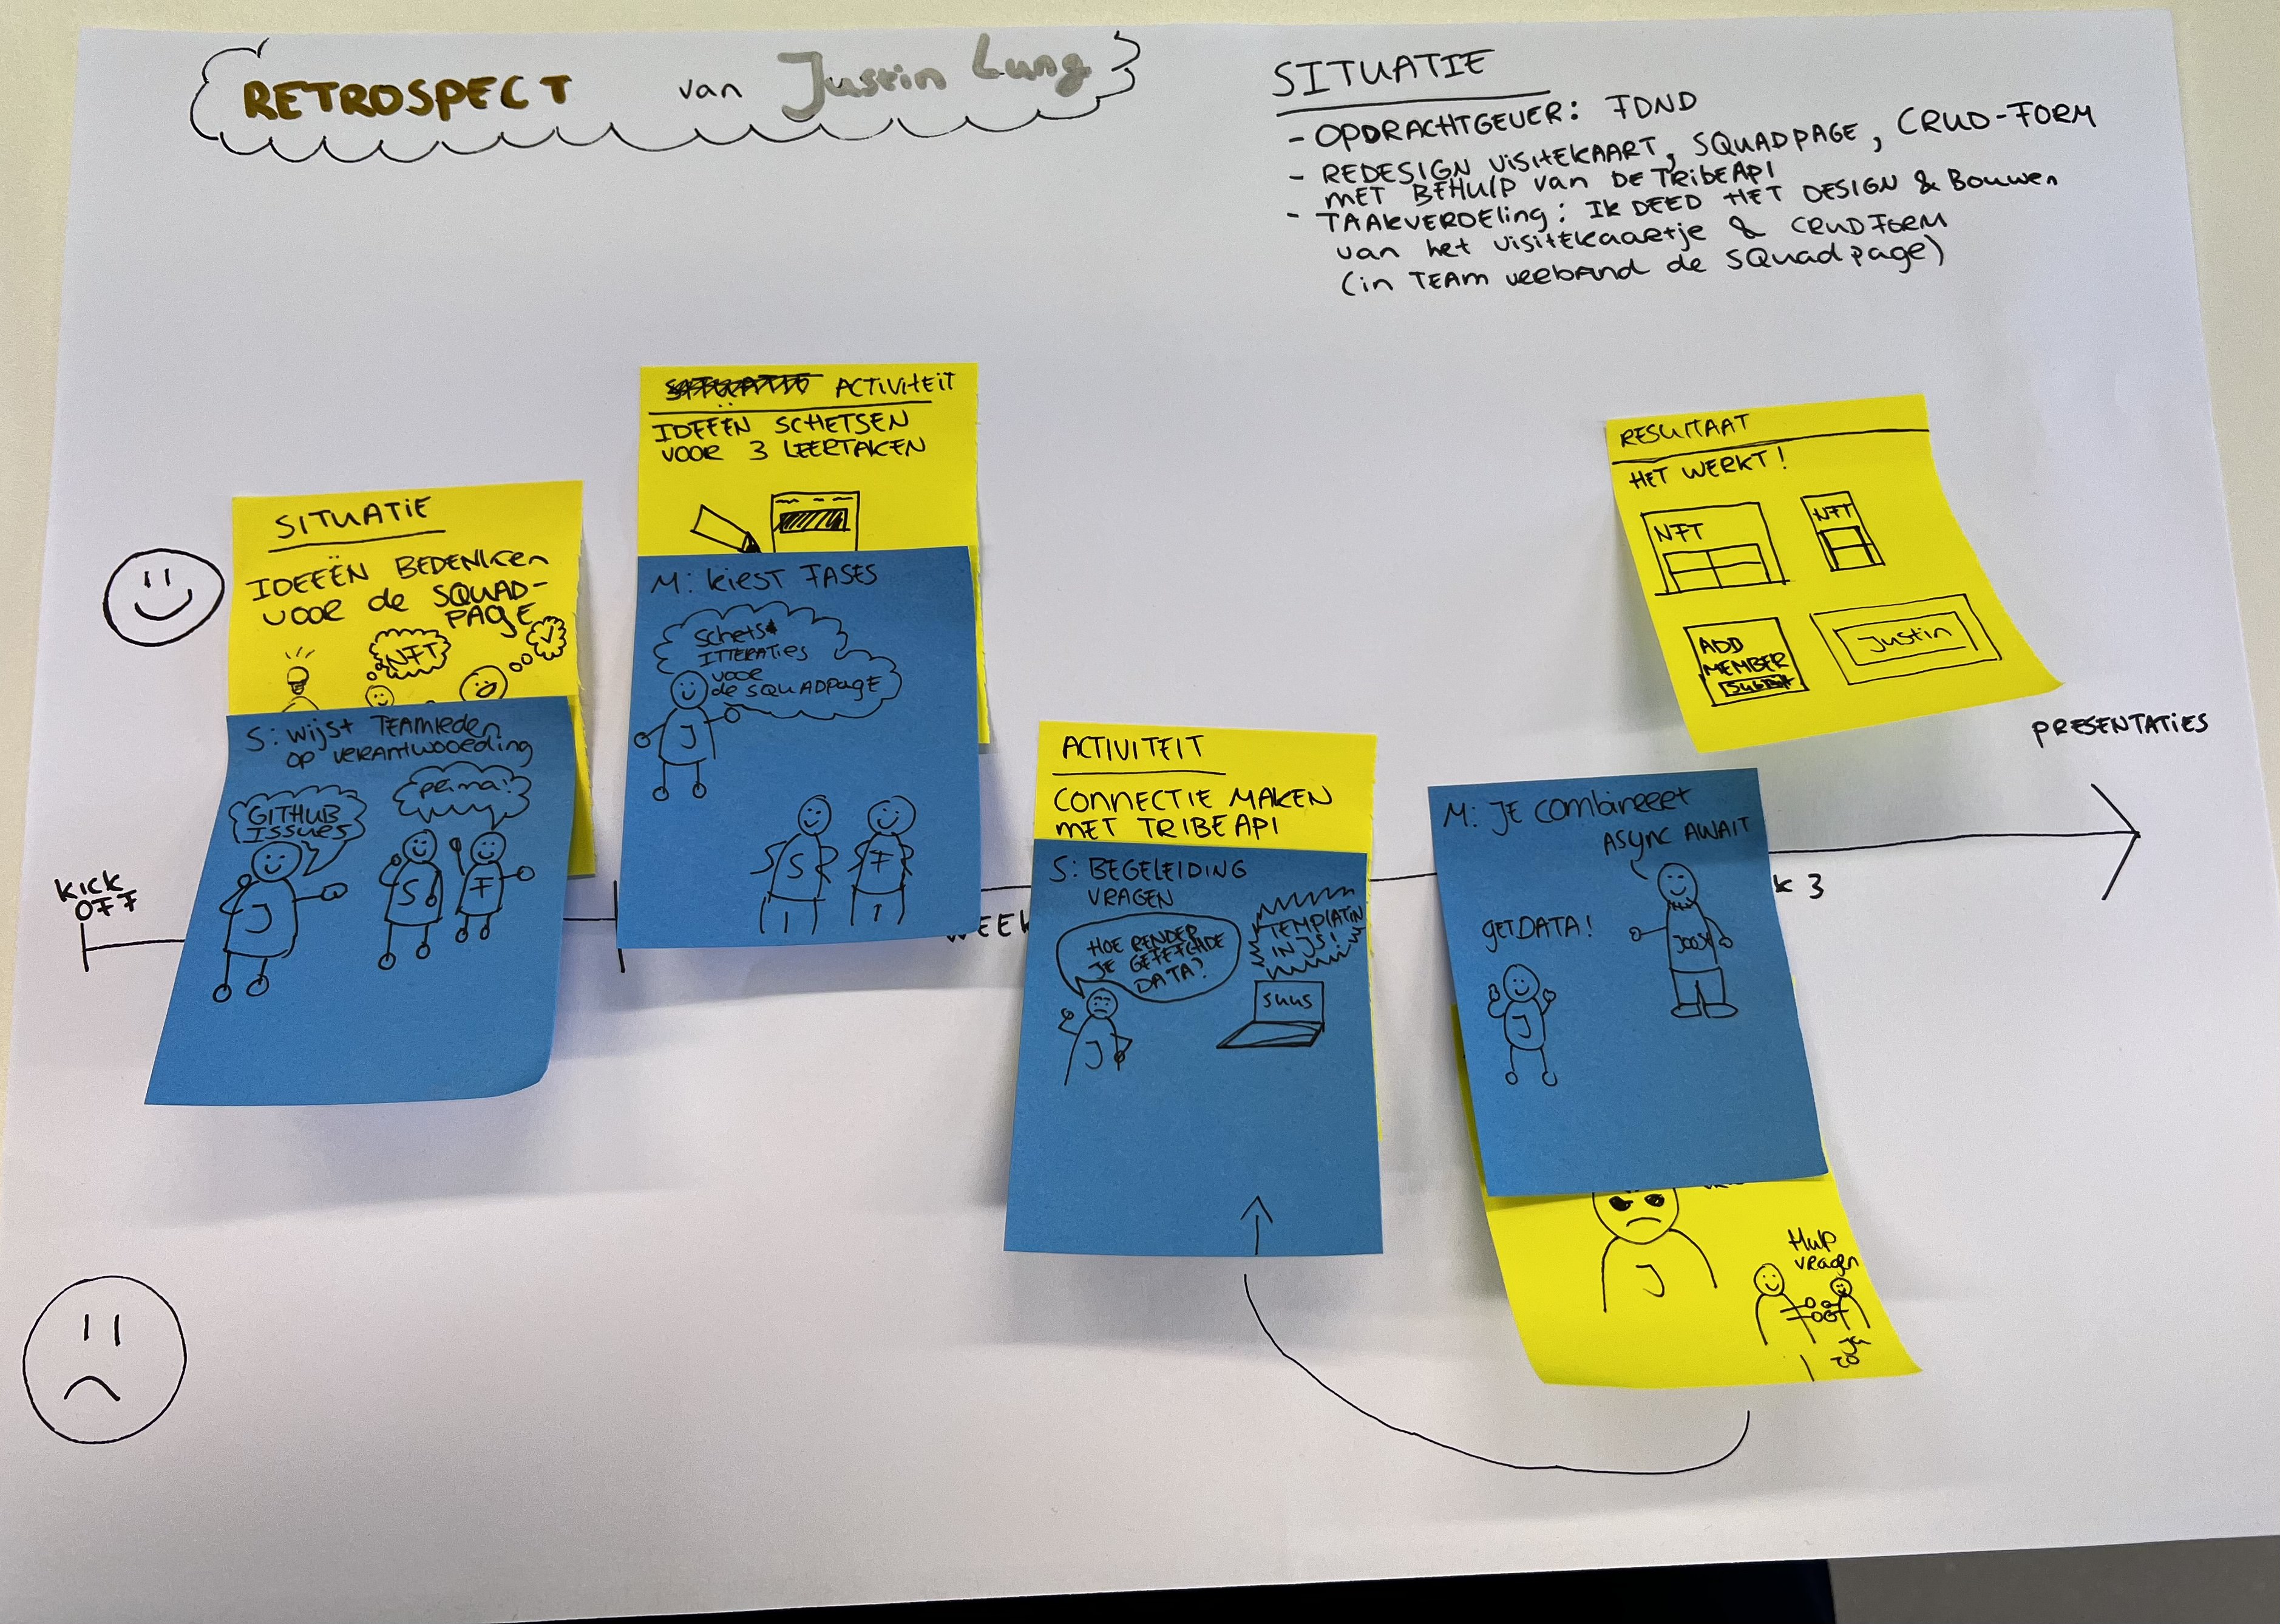 RETROSPECT van Justin Lung
SITUATIE
- OPDRACHTGEVER: FDND
- REDESIGN VISITEKAART, SQUADPAGE, CRUD-FORM
MET BEHULP van DE TRIBEAPI
- TAAKVERDELING: IK DEED HET DESIGN & BOUWEN
van het visitekaartje & CRUDFORM
(in TEAM verband de SQuadpage)
SITUATIE
IDEEËN BEDENKEN
VOOR de SQUAD-
PAGE
NFT
S: wijst TEAMleden
op verantwoording
GITHUB
ISSUES
prima!
J
S
F
ACTIVITEIT
IDEEËN SCHETSEN
VOOR 3 LEERTAKEN
M: kiest FASES
Schets
ITTERATIES
VOOR
de SQUADPAGE
J
S
F
ACTIVITEIT
CONNECTIE MAKEN
MET TRIBE API
S: BEGELEIDING
VRAGEN
HOE RENDER
JE GEFETCHDE
DATA?
TEMPLATIN
IN JS!
J
SUUS
RESULTAAT
HET WERKT!
NFT
NFT
ADD
MEMBER
Submit
Justin
M: JE combineert
ASYNC AWAIT
GETDATA!
JOOST
J
J
Hulp
vragen
KICK
OFF
WEEK
K 3
PRESENTATIES